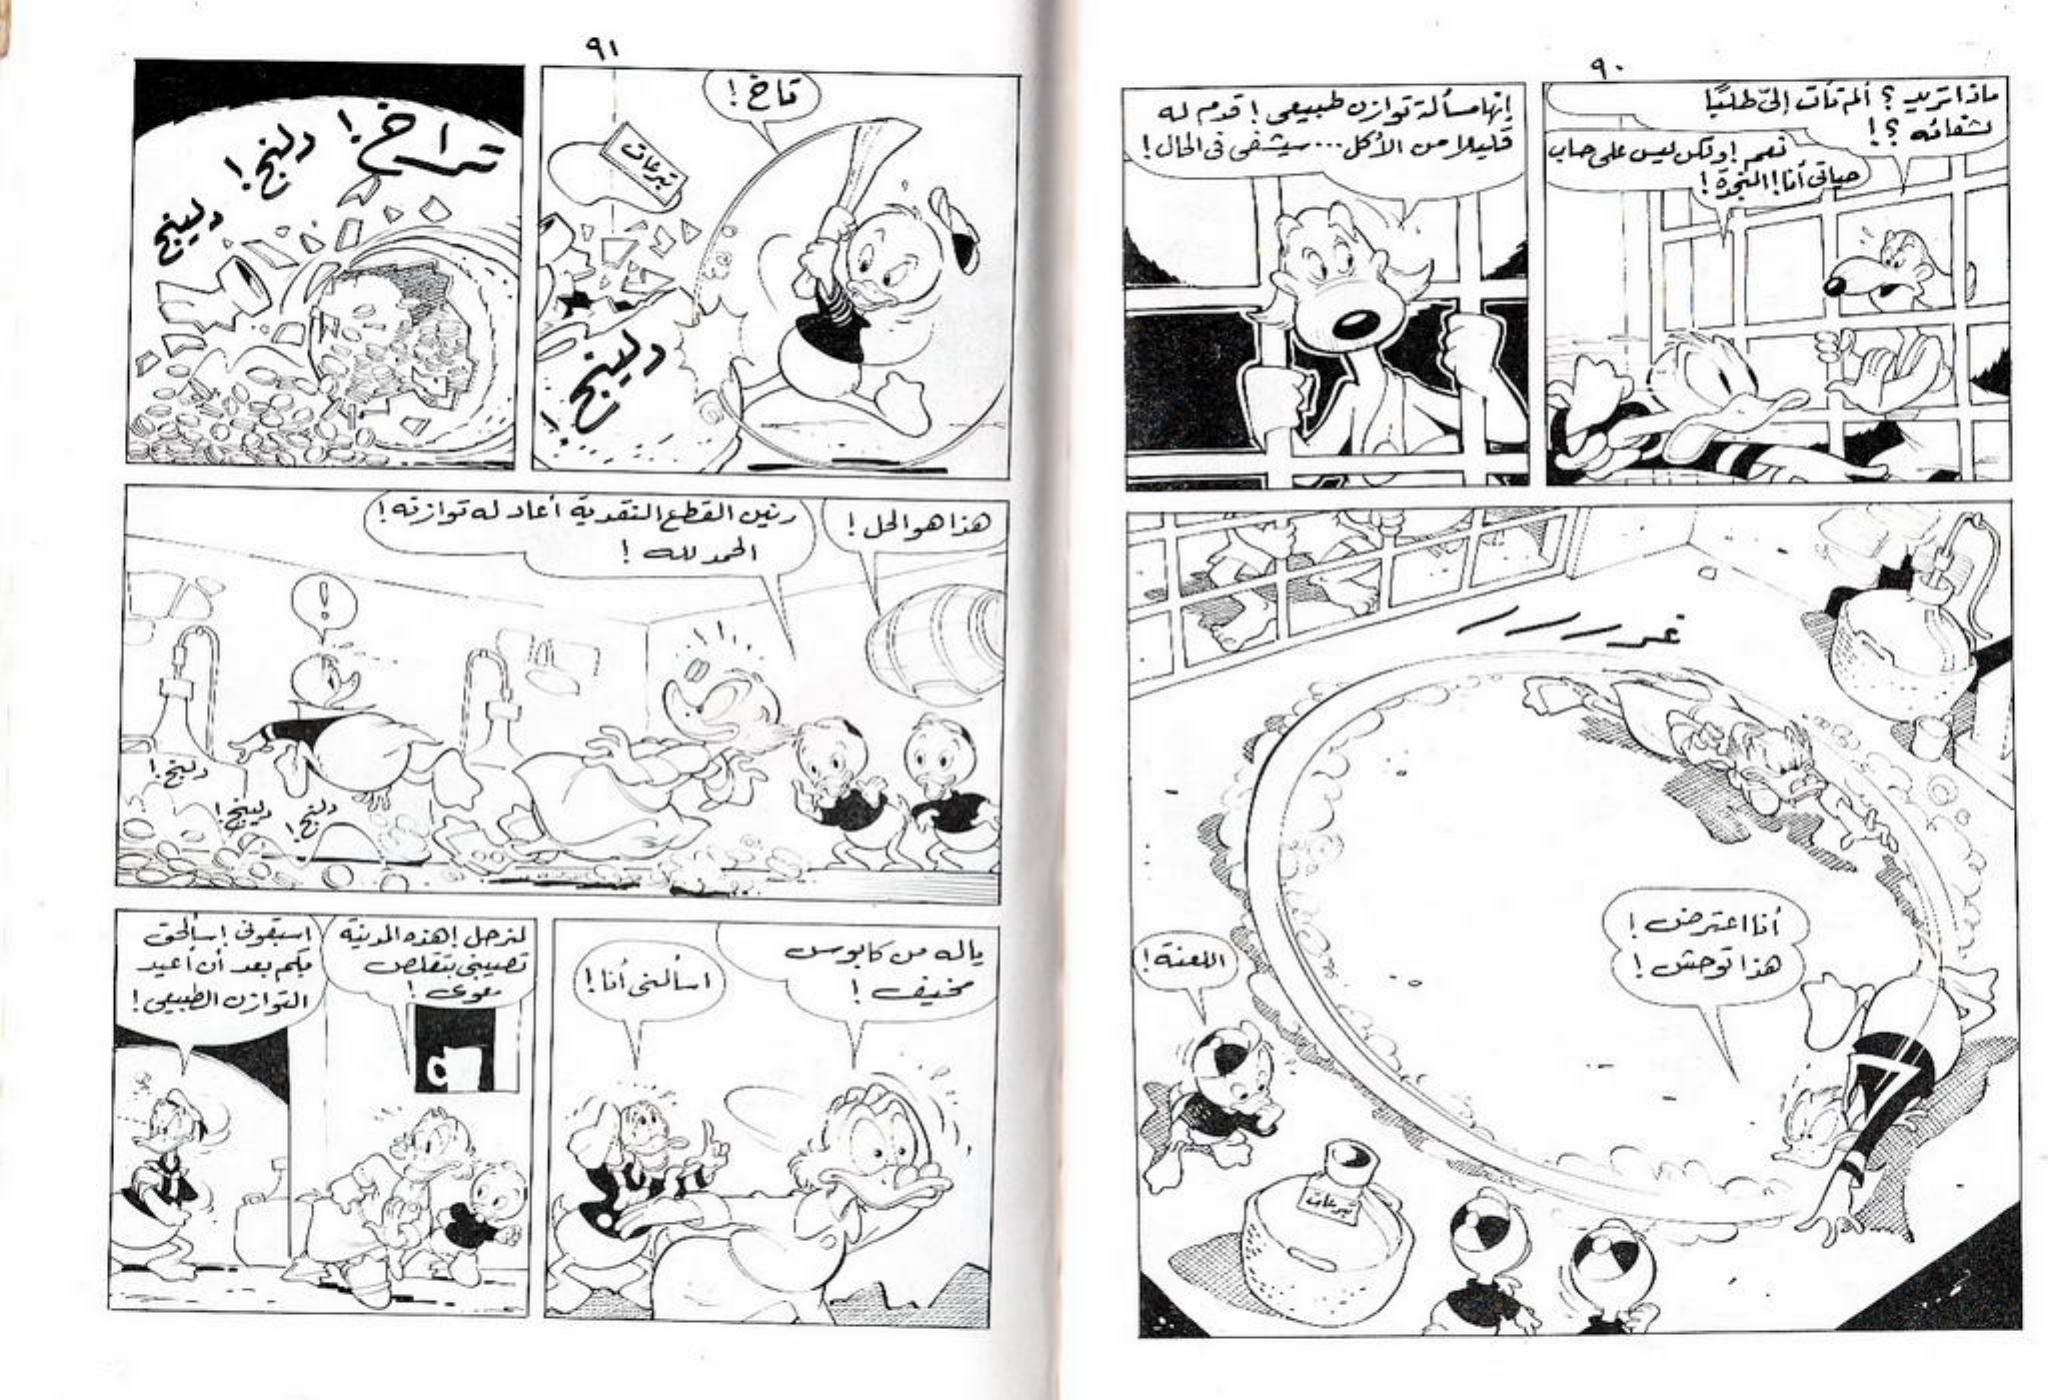 ٩٠
ماذا تريد؟ ألم تأت إليّ طلبًا
لشفائه؟!
نعم! ولكن ليس على حساب
حياتي أنا! النجدة!
إنها مسألة توازن طبيعي! قدم له
قليلا من الأكل... سيشفى في الحال!
غررررر
أنا اعترض!
هذا توحش!
اللعنة!
تبرعات
٩١
تاخ!
تبرعات
دلينج!
تراخ!
دلنج!
دلينج
هذا هو الحل!
رنين القطع النقدية أعاد له توازنه!
الحمد لله!
!
دلينج!
دلينج!
دلنج!
ياله من كابوس
مخيف!
اسألني أنا!
لنرحل! هذه المدينة
تصيبني بتقلص
معوي!
اسبقوني! سألحق
بكم بعد أن أعيد
التوازن الطبيعي!